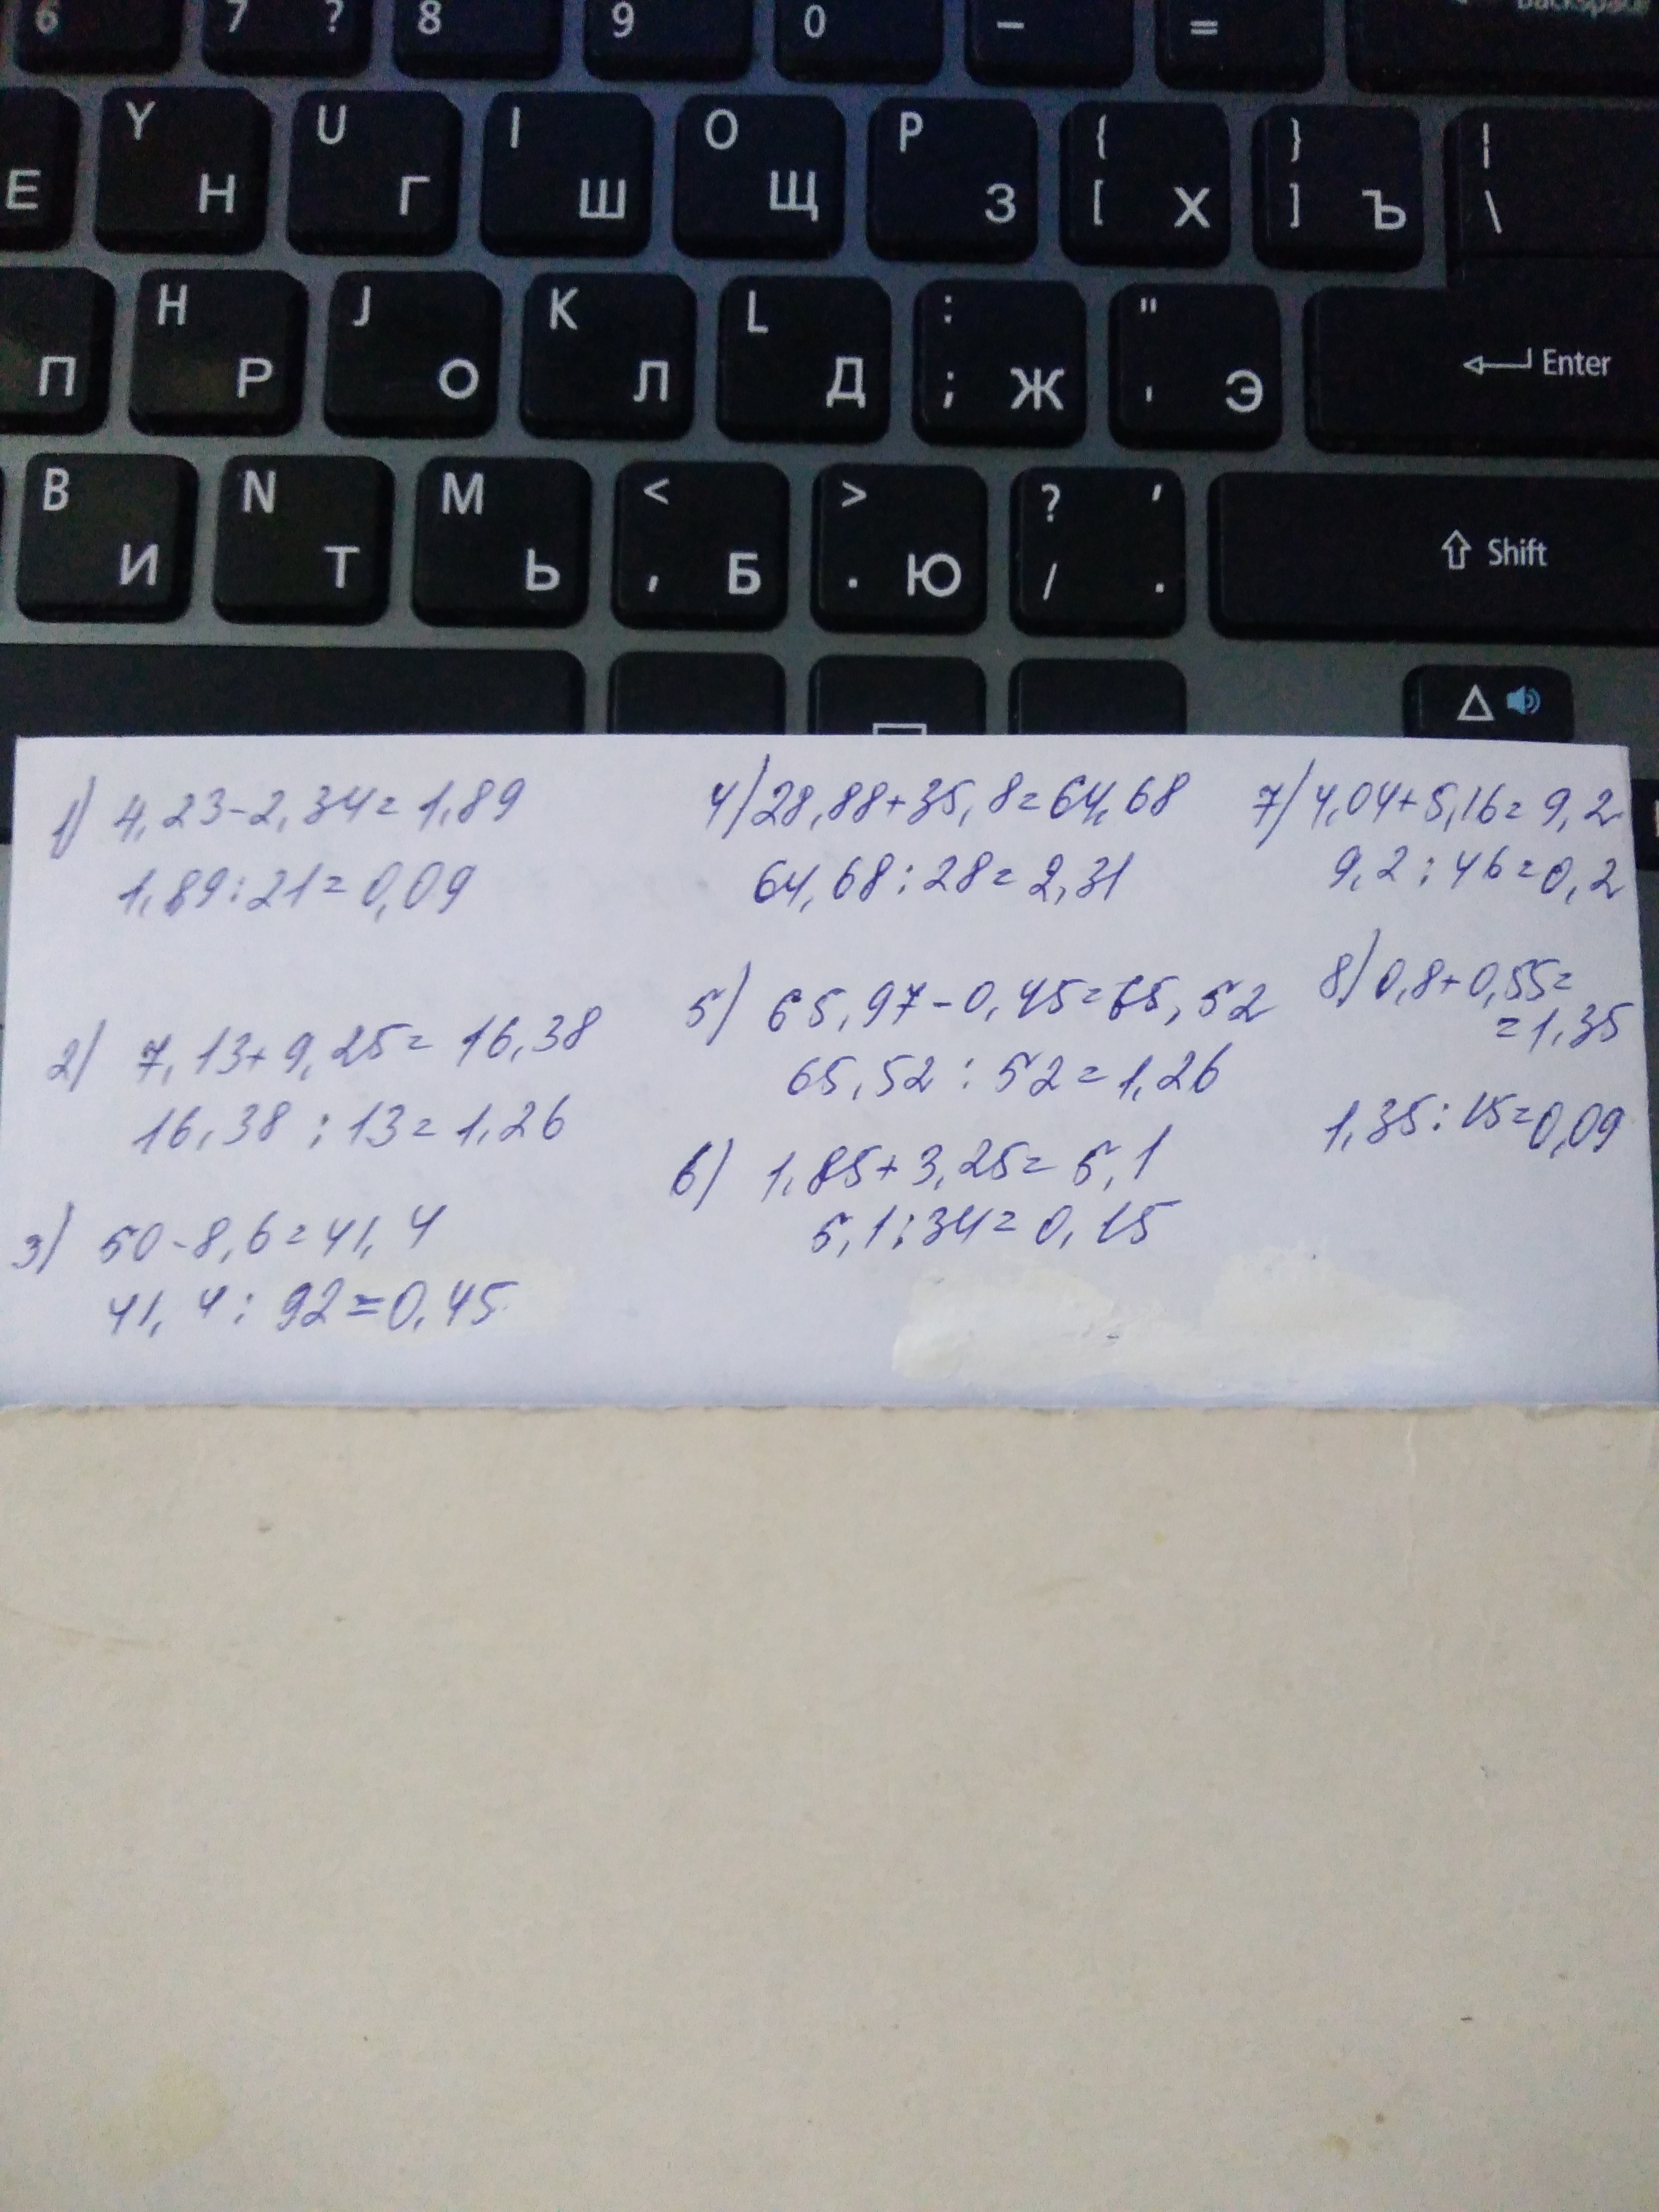 6 7 ? 8 9 0 - = Backspace
E Y Н U Г I Ш O Щ P З { [ Х } ] Ъ | \
П H Р J О K Л L Д : ; Ж " ' Э Enter
B И N Т M Ь < , Б > . Ю ? / , . Shift
1) 4,23-2,34=1,89
1,89:21=0,09
2) 7,13+9,25=16,38
16,38:13=1,26
3) 50-8,6=41,4
41,4:92=0,45
4) 28,88+35,8=64,68
64,68:28=2,31
5) 65,97-0,45=65,52
65,52:52=1,26
6) 1,85+3,25=5,1
5,1:34=0,15
7) 4,04+5,16=9,2
9,2:46=0,2
8) 0,8+0,55=
=1,35
1,35:15=0,09